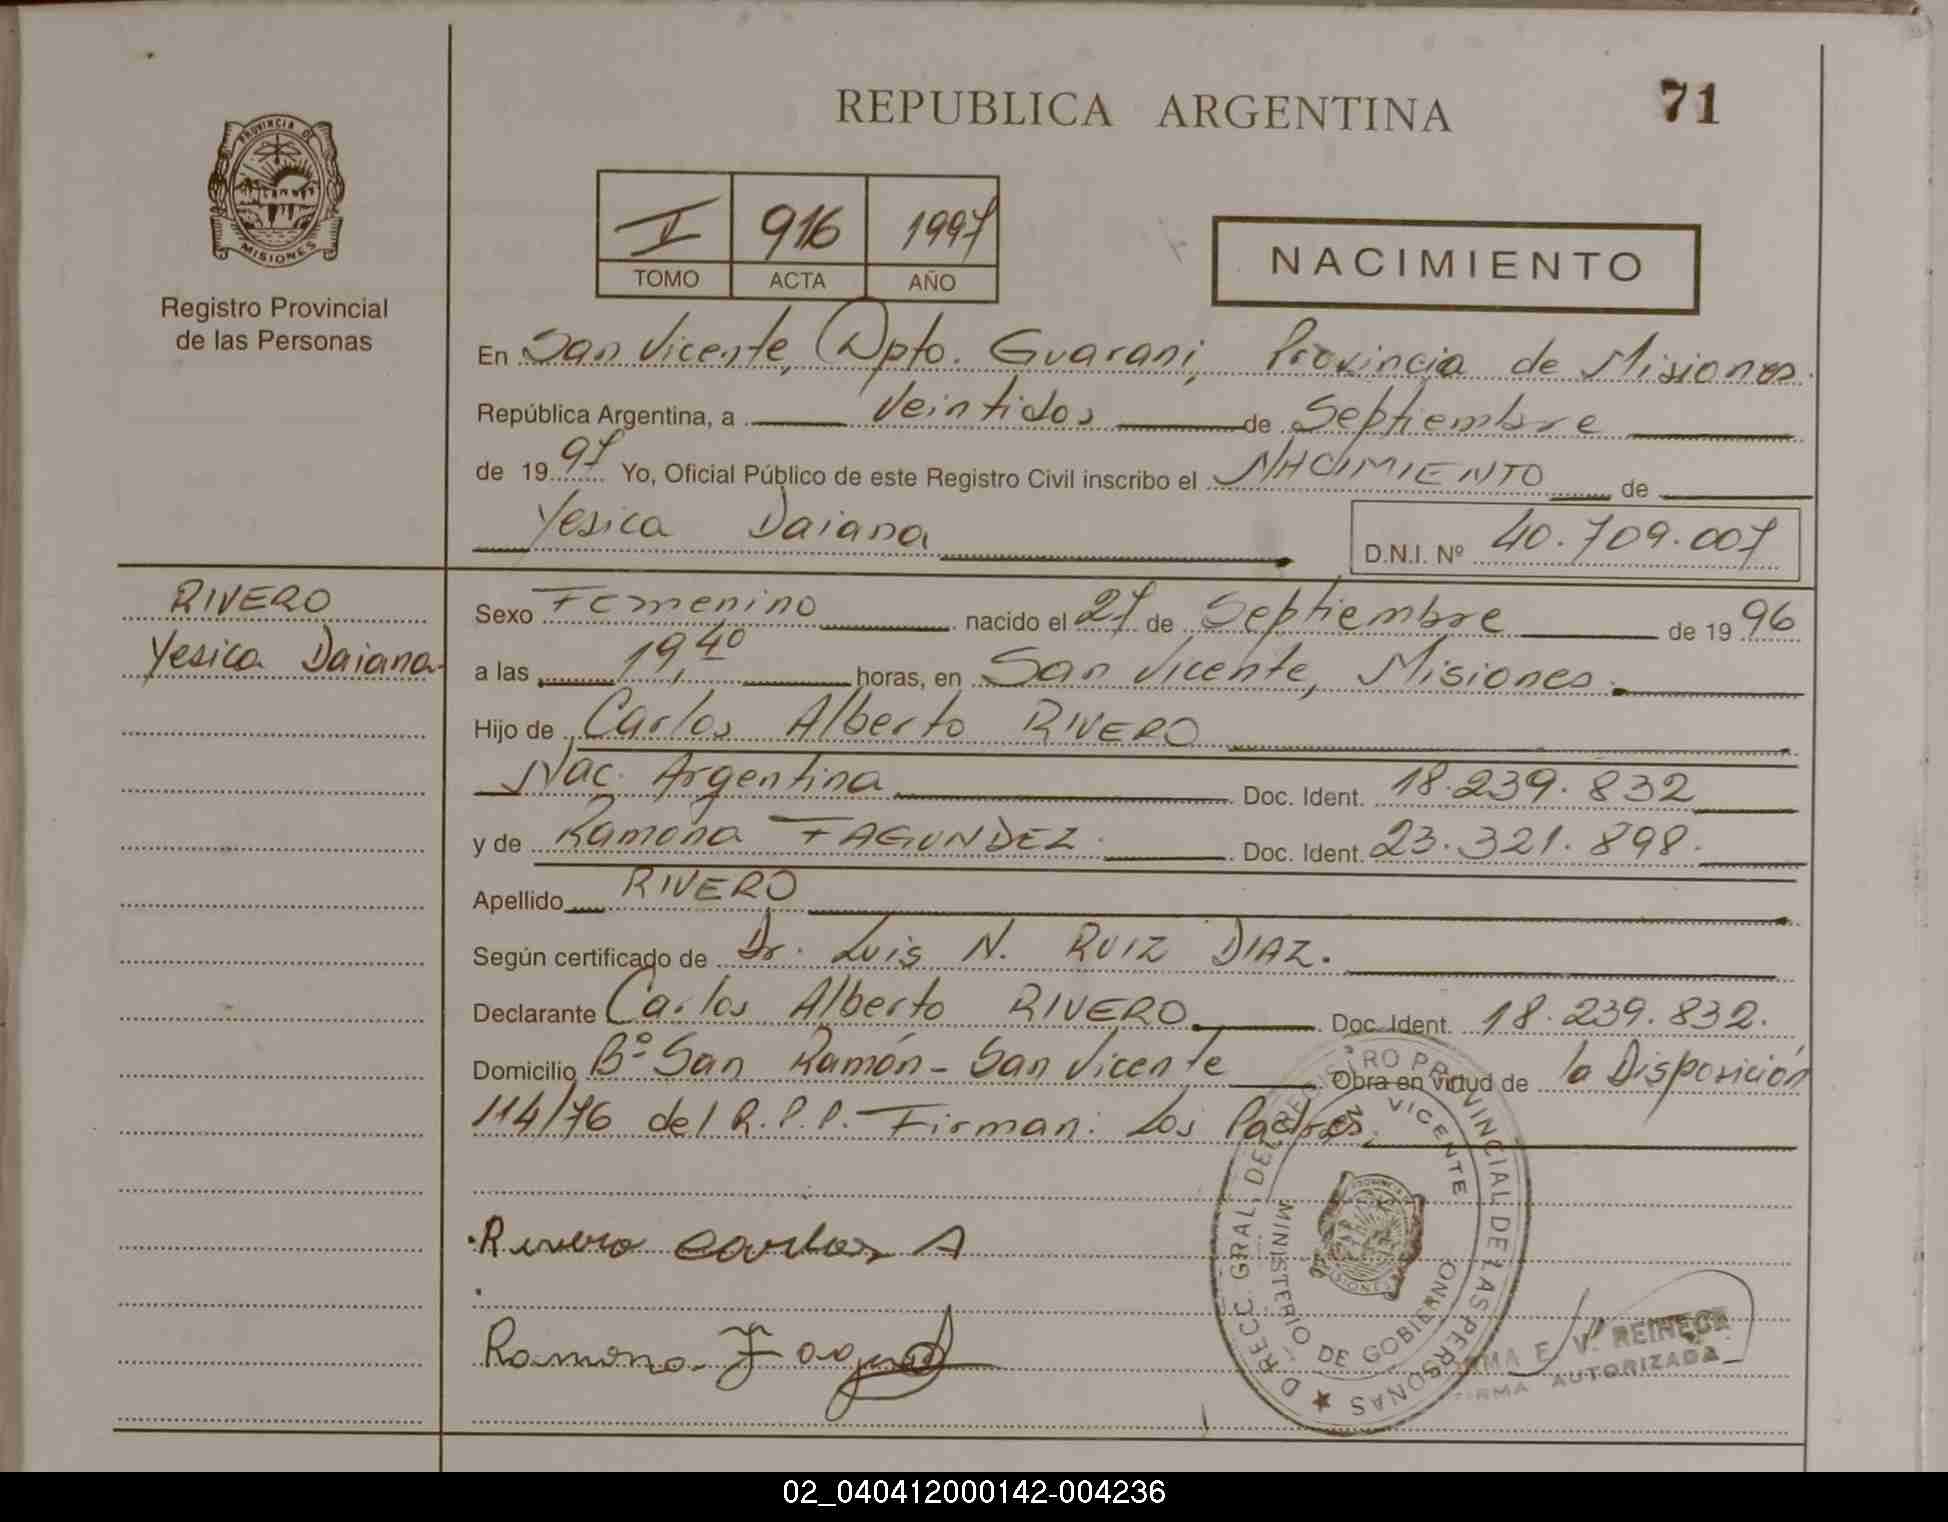 REPUBLICA ARGENTINA
71
PROVINCIA DE
MISIONES
Registro Provincial
de las Personas
I 916 1997
TOMO ACTA AÑO
NACIMIENTO
En San Vicente, Dpto. Guarani, Provincia de Misiones.
República Argentina, a Veintidos de Septiembre
de 1997 Yo, Oficial Público de este Registro Civil inscribo el NACIMIENTO de
Yesica Daiana D.N.I. Nº 40.709.007
RIVERO
Yesica Daiana
Sexo Femenino nacido el 27 de Septiembre de 1996
a las 19,40 horas, en San Vicente, Misiones.
Hijo de Carlos Alberto RIVERO
Nac. Argentina Doc. Ident. 18.239.832
y de Ramona FAGUNDEZ. Doc. Ident. 23.321.898.
Apellido RIVERO
Según certificado de Dr. Luis N. RUIZ DIAZ.
Declarante Carlos Alberto RIVERO Doc. Ident. 18.239.832.
Domicilio Bº San Ramón - San Vicente Obra en virtud de la Disposición
114/76 del R.P.P. Firman: Los Padres.
Rivero Carlos A
Ramona
DIRECC. GRAL. DEL REGISTRO PROVINCIAL DE LAS PERSONAS
VICENTE
MINISTERIO DE GOBIERNO
E. V. 
FIRMA AUTORIZADA
02_040412000142-004236